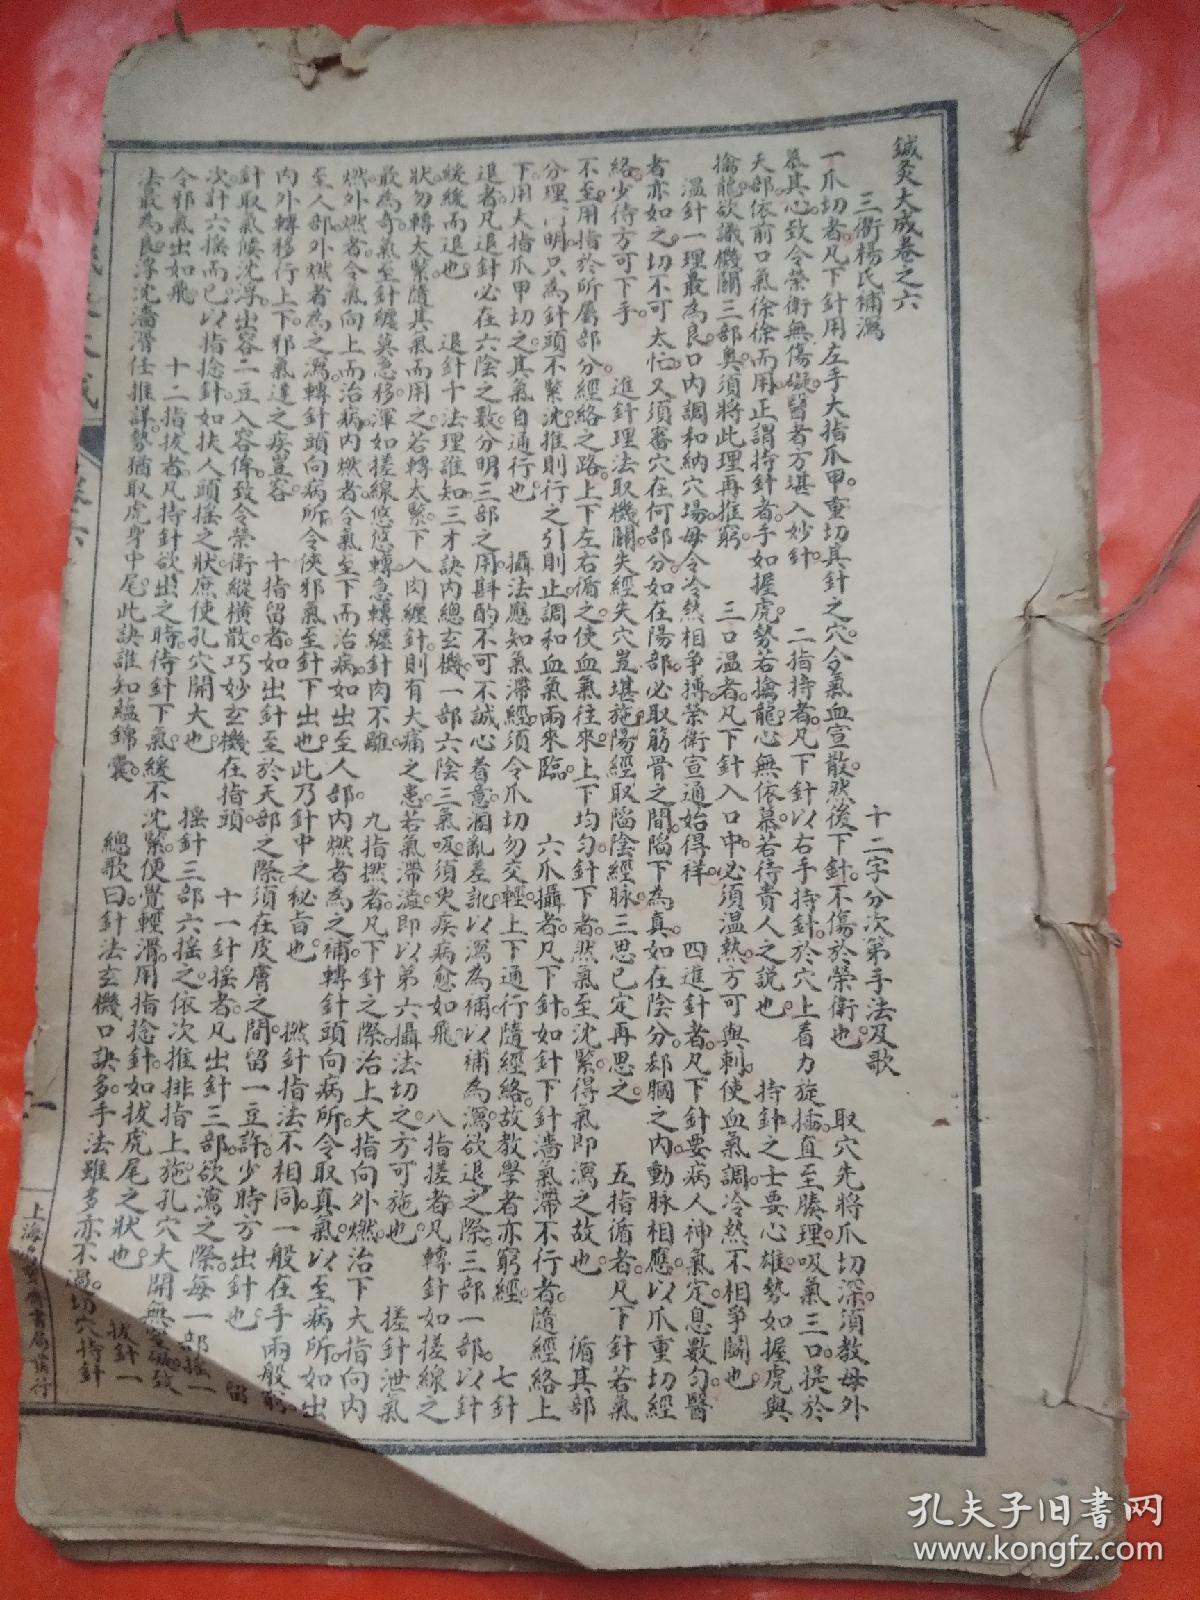 鍼灸大成卷之六
三衢楊氏補瀉　十二字分次第手法及歌
一爪切者凡下針用左手大指爪甲重切其針之穴令氣血宣散然後下針不傷於榮衛也　取穴先將爪切深須教毋外
慕其心致令榮衛無傷礙醫者方堪入妙針　二指持者凡下針以右手持針於穴上着力旋插直至腠理吸氣三口提於
天部依前口氣徐徐而用正謂持針者手如握虎勢若擒龍心無依慕若待貴人之説也　持針之士要心雄勢如握虎與
擒龍欲識機關三部奧須將此理再推窮　三口温者凡下針入口中必須温熱方可與刺使血氣調冷熱不相爭鬭也
温針一理最為良口内調和納穴場毋令冷熱相爭搏榮衛宣通始得祥　四進針者凡下針要病人神氣定息數匀醫
者亦如之切不可太忙又須審穴在何部分如在陽部必取筋骨之間陷下為真如在陰分郄膕之内動脉相應以爪重切經
絡少待方可下手　進針理法取機關失經失穴豈堪施陽經取陷陰經脉三思已定再思之　五指循者凡下針若氣
不至用指於所屬部分經絡之路上下左右循之使血氣往來上下均匀針下者然氣至沈緊得氣即瀉之故也　循其部
分理門明只為針頭不緊沈推則行之引則止調和血氣兩來臨　六爪攝者凡下針如針下針濇氣滯不行者隨經絡上
下用大指爪甲切之其氣自通行也　攝法應知氣滯經須令爪切勿交輕上下通行隨經絡故教學者亦窮經　七針
退者凡退針必在六陰之數分明三部之用斟酌不可不誠心着意溷亂差訛以瀉為補以補為瀉欲退之際三部一部以針
緩緩而退也　退針十法理誰知三才訣内總玄機一部六陰三氣吸須臾疾病愈如飛　八指搓者凡轉針如搓線之
狀勿轉太緊隨其氣而用之若轉太緊下入肉纏針則有大痛之患若氣滯澁即以第六攝法切之方可施也　搓針泄氣
最為奇氣至針纏莫急移渾如搓線悠悠轉急轉纏針肉不離　九指撚者凡下針之際治上大指向外撚治下大指向内
撚外撚者令氣向上而治病内撚者令氣至下而治病如出至人部内撚者為之補轉針頭向病所令取真氣以至病所如出
至人部外撚者為之瀉轉針頭向病所令俠邪氣至針下出也此乃針中之秘旨也　撚針指法不相同一般在手兩般窮
内外轉移行上下邪氣逢之疾豈容　十指留者如出針至於天部之際須在皮膚之間留一豆許少時方出針也　留
針取氣候沈浮出容二豆入容侔致令榮衛縱橫散巧妙玄機在指頭　十一針搖者凡出針三部欲瀉之際每一部搖一
次計六搖而已以指捻針如扶人頭搖之狀庶使孔穴開大也　搖針三部六搖之依次推排指上施孔穴大開無窒礙致
令邪氣出如飛　十二指拔者凡持針欲出之時待針下氣緩不沈緊便覺輕滑用指捻針如拔虎尾之狀也　拔針一
法最為良浮沈濇滑任推詳勢猶取虎身中尾此訣誰知蘊錦囊　總歌曰針法玄機口訣多手法雖多亦不過切穴持針
上海
書局
行
孔夫子旧书网
www.kongfz.com